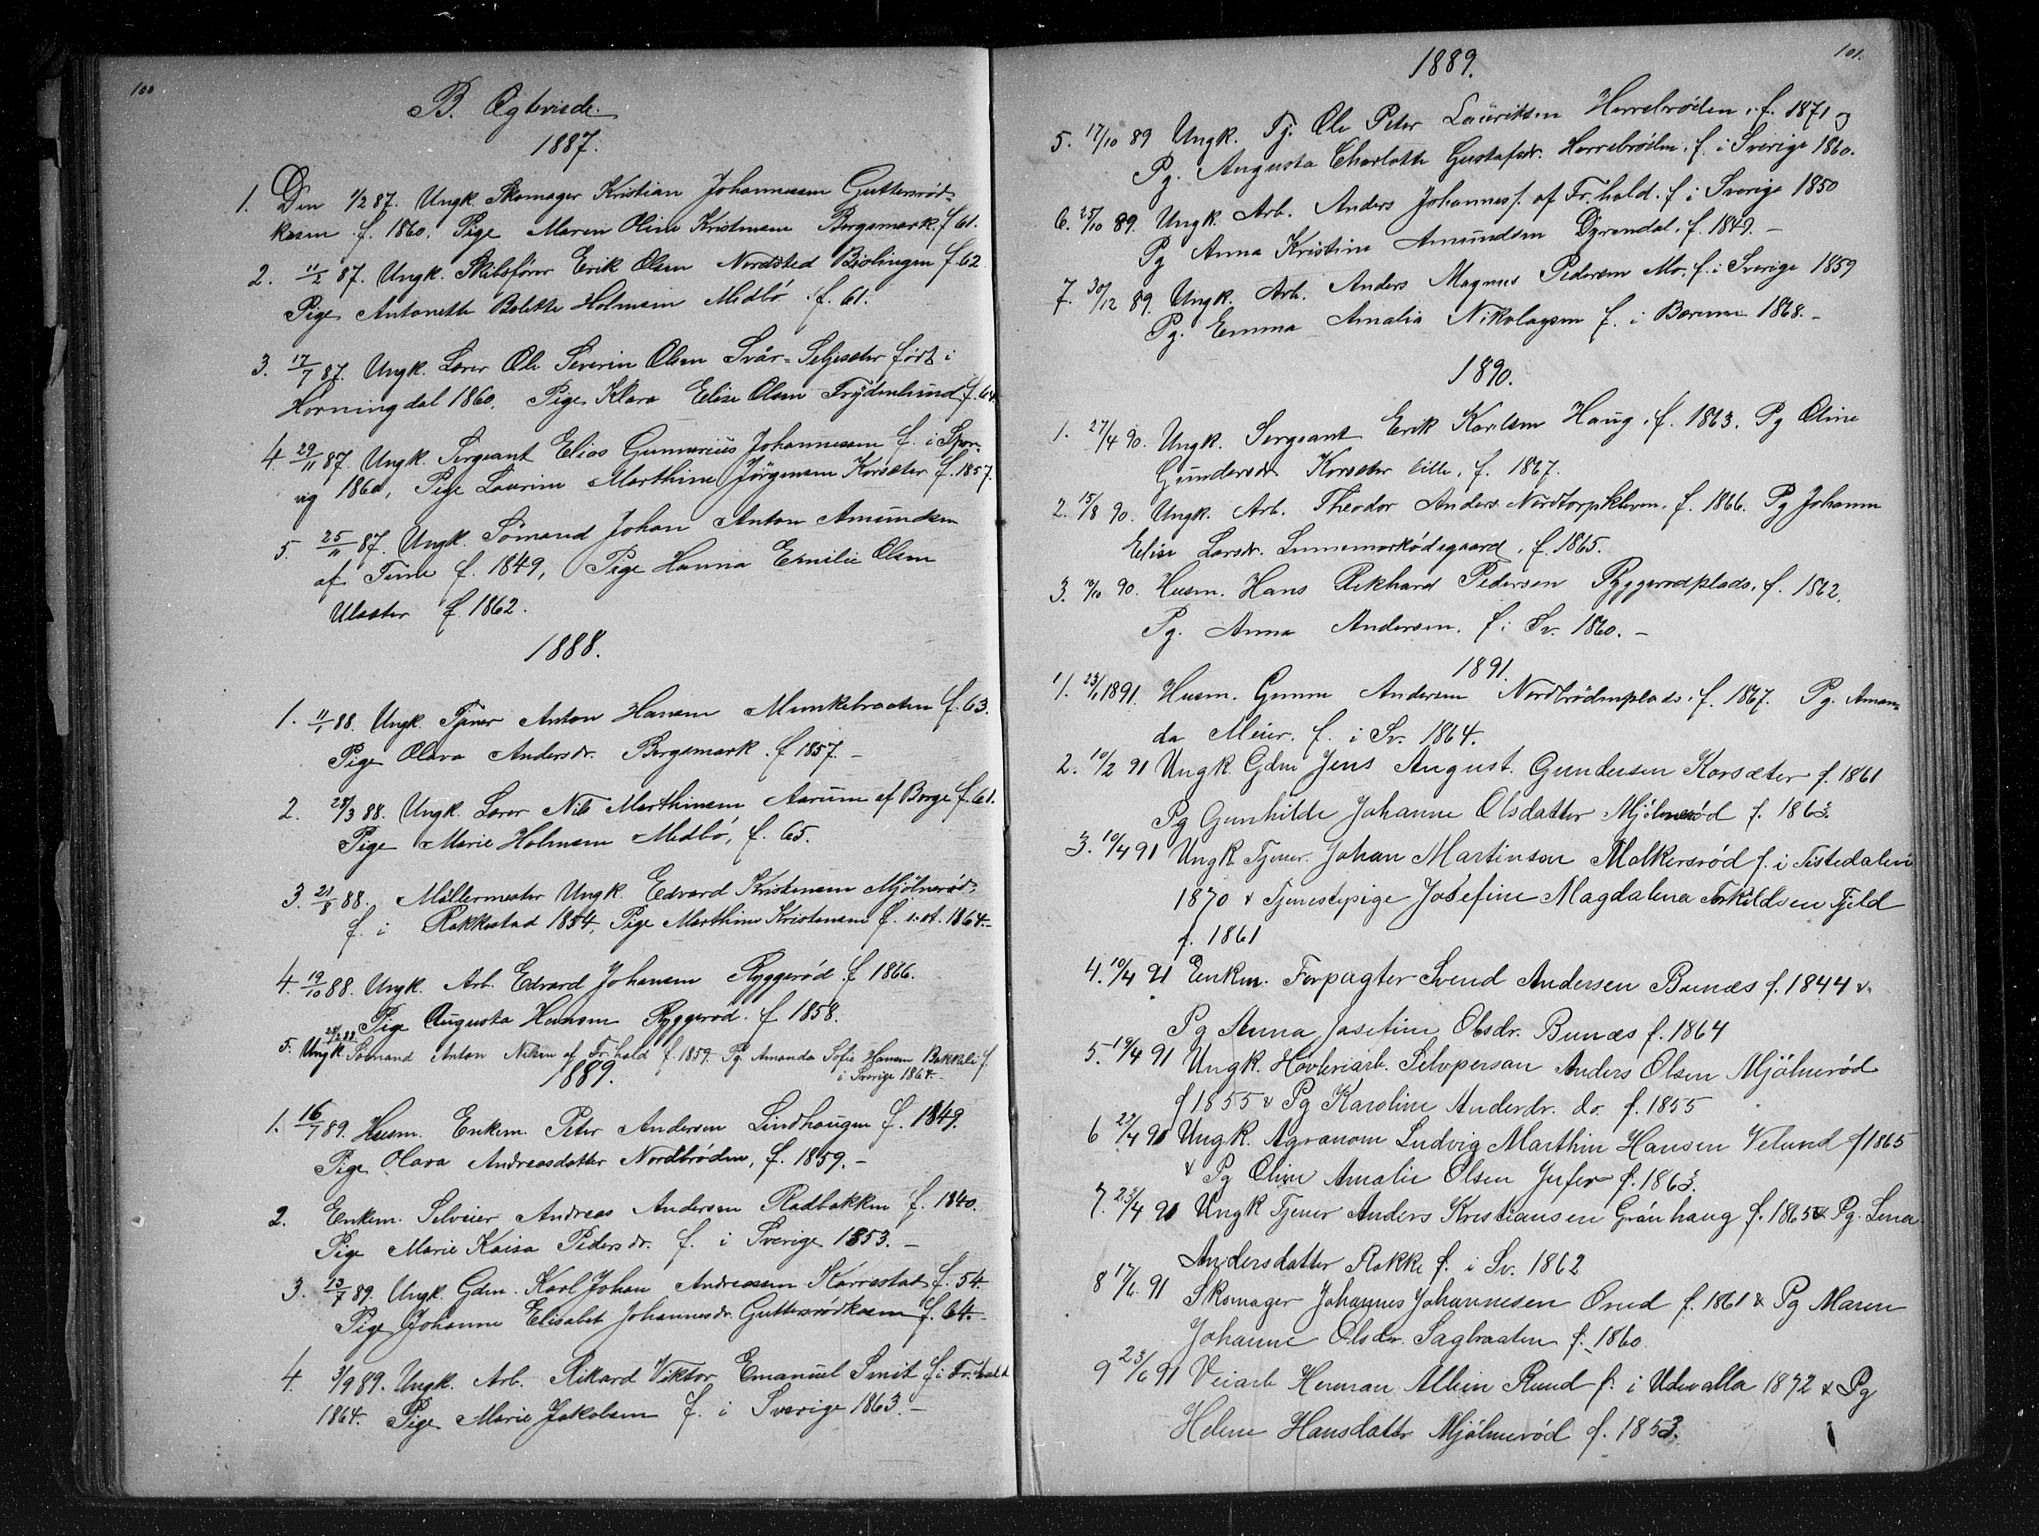 100
B. Ægteviede.
1887.
1. Den 1/2 87. Ungk. Skomager Kristian Johannesen Guttersrød-
kasen f. 1860. Pige Maren Oline Kristensen Borgemark. f 61.
2. 11/2 87. Ungk. Skibsfører Erik Olsen Nordsted Biølingen f. 62
Pige Antonette Bolette Holmsen Medbö f. 61.
3. 17/7 87. Ungk. Lærer Ole Severin Olsen Svår-Seljesæter født i
Horningdal 1860. Pige Klara Elise Olsen Frydenlund f. 64
4. 29/11 87. Ungk. Sergeant Elias Gunnerius Johannesen f. i Spor-
vig 1860, Pige Laurine Marthine Jörgensen Korsæter f. 1857.
5. 25/11 87. Ungk. Sömand Johan Anton Amundsen
af Tune f. 1849, Pige Hanna Emilie Olsen
Ulsæter f. 1862.
1888.
1. 11/1 88. Ungk. Tjener Anton Hansen Munkebraaten f. 63.
Pige Olava Andersdr. Borgemark. f 1857. -
2. 28/3 88. Ungk. Lærer Nils Marthinsen Aarum af Borge f. 61.
Pige Marie Holmsen Medbö, f. 65.
3. 21/8 88. Møllermester Ungk. Edvard Kristensen Mjölnerød,
f. i Rakkestad 1854, Pige Marthine Kristensen f. i st. 1864. -
4. 19/10 88. Ungk. Arb. Edvard Johansen Ryggerød f. 1866.
Pige Augusta Hansen Ryggerød. f 1858.
5. 28/12 88 Ungk. Sømand Anton Nilsen af Fr.hald f. 1859. Pg. Amanda Sofie Hansen Bakkeli f.
i Sverige 1864. -
1889.
1. 16/1 89. Husm. Enkem. Peter Andersen Lindhaugen f. 1849.
Pige Olava Andreasdatter Nordbröden, f. 1859. -
2. Enkem. Selveier Andreas Andersen Rødbakken f. 1840.
Pige Marie Kaisa Pedersdr. f. i Sverige 1853. -
3. 13/7 89. Ungk. Gdm. Karl Johan Andreassen Karrestad f. 54.
Pige Johanne Elisabet Johannesdr. Guttersrødkasen f. 64. -
4. 3/9 89. Ungk. Arb. Rikard Viktor Emanuel Smit f. i Fr.hald
1864. Pige Marie Jakobsen f. i Sverige 1863. -
101.
1889.
5. 17/10 89 Ungk. Tj. Ole Peter Lauritsen Herrebröden, f. 1871 og
Pg. Augusta Charlotte Gustafsdr. Herrebröden. f. i Sverige 1860.
6. 25/10 89. Ungk. Arb. Anders Johanness. af Fr.hald. f. i Sverige 1850
Pg Anna Kristine Amundsen Dyrendal, f. 1849. -
7. 30/12 89. Ungk. Arb. Anders Magnus Pedersen Mo. f. i Sverige 1859
Pg. Emma Amalia Nikolaysen f. i Bærum 1868. -
1890.
1. 27/4 90. Ungk. Sergeant Erik Karlsen Haug, f. 1863. Pg Oline
Gundersdr. Korsæter lille, f. 1867.
2. 15/8 90. Ungk. Arb. Theodor Anders. Nordtorpkleven, f. 1866. Pg Johanne
Elise Larsdr. Lunnemarködegaard, f. 1865.
3. 12/10 90. Husm. Hans Rikhard Pedersen Ryggerødplads, f. 1862,
Pg. Anna Andersen. f. i Sv. 1860. -
1891.
1. 23/1 1891. Husm. Gunne Andersen Nordbrödenplads, f. 1867. Pg. Aman-
da Meier. f. i Sv. 1864.
2. 10/2 91 Ungk. Gdm Jens August Gundersen Korsæter f. 1861
Pg Gunhilde Johanne Olsdatter Mjölnerød f. 1863.
3. 10/4 91 Ungk. Tjener. Johan Martinsen Molkersrød f. i Tistedalen
1870 & Tjenestepige Josefine Magdalena Torkildsen Fjeld
f. 1861
4. 10/4 91 Enkm. Forpagter Svend Andersen Bunæs f. 1844 &
Pg Anna Josefine Olsdr. Bunæs f. 1864
5. 19/4 91 Ungk. Høvleriarb. Selvpersan Anders Olsen Mjölnerød
f 1855 & Pg Karoline Andersdr. do. f. 1855
6 22/4 91 Ungk. Agronom Ludvig Marthin Hansen Velund f 1865
& Pg Oline Amalie Olsen Jufer f. 1863.
7. 23/4 91 Ungk Tjener Anders Kristiansen Grånhaug f. 1865 & Pg. Lena
Andersdatter Rakke f. i Sv. 1862
8 17/6 91 Skomager Johannes Johannesen Omd f. 1861 & Pg Maren
Johanne Olsdr. Sagbraaten f. 1860
9 23/6 91 Veiarb Herman Albin Rund f. i Udevalla 1872 & Pg
Helene Hansdatter Mjölnerød f. 1853.